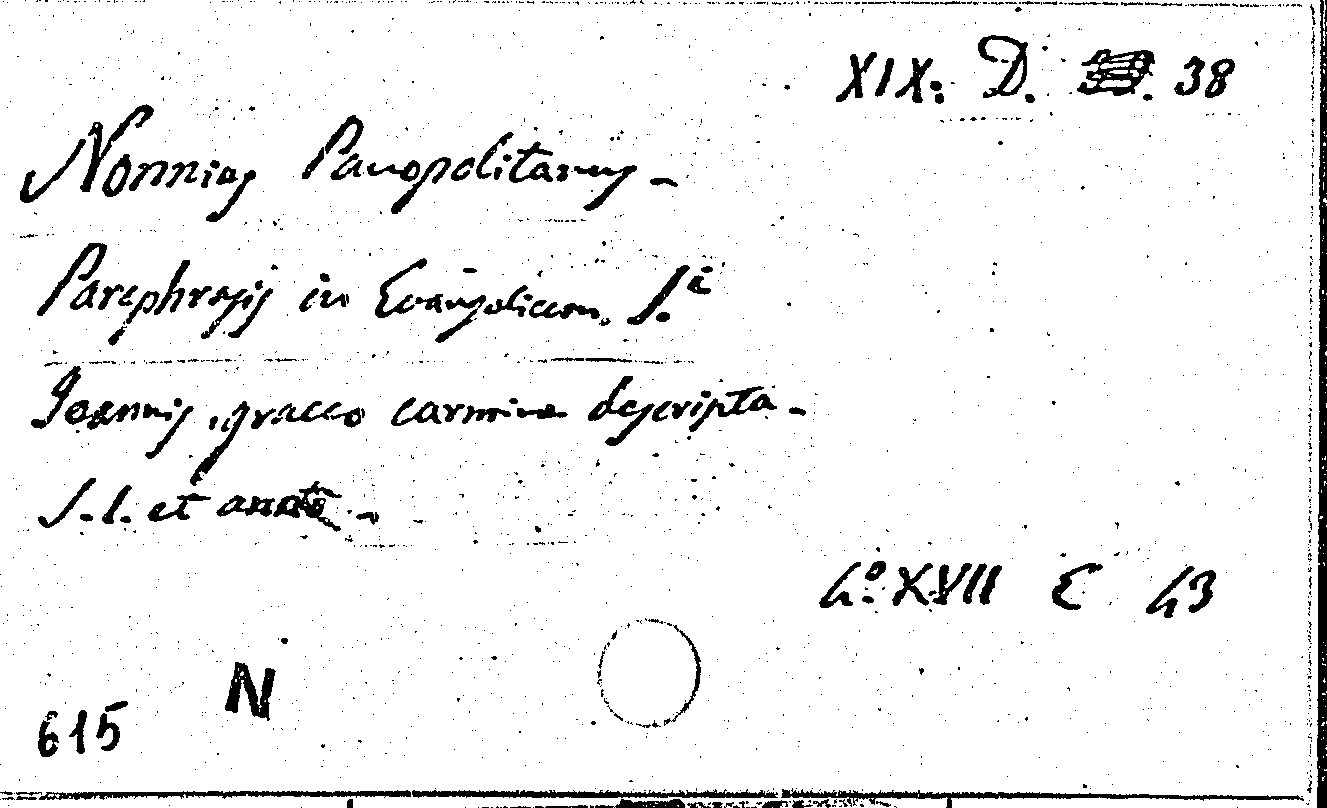 XIX. D. 38
Nonnius Panopolitanus -
Paraphrasis in Evangelicum. S.i
Joannis, graeco carmine descripta -
S. l. et anno -
4° XVII E 43
N
615